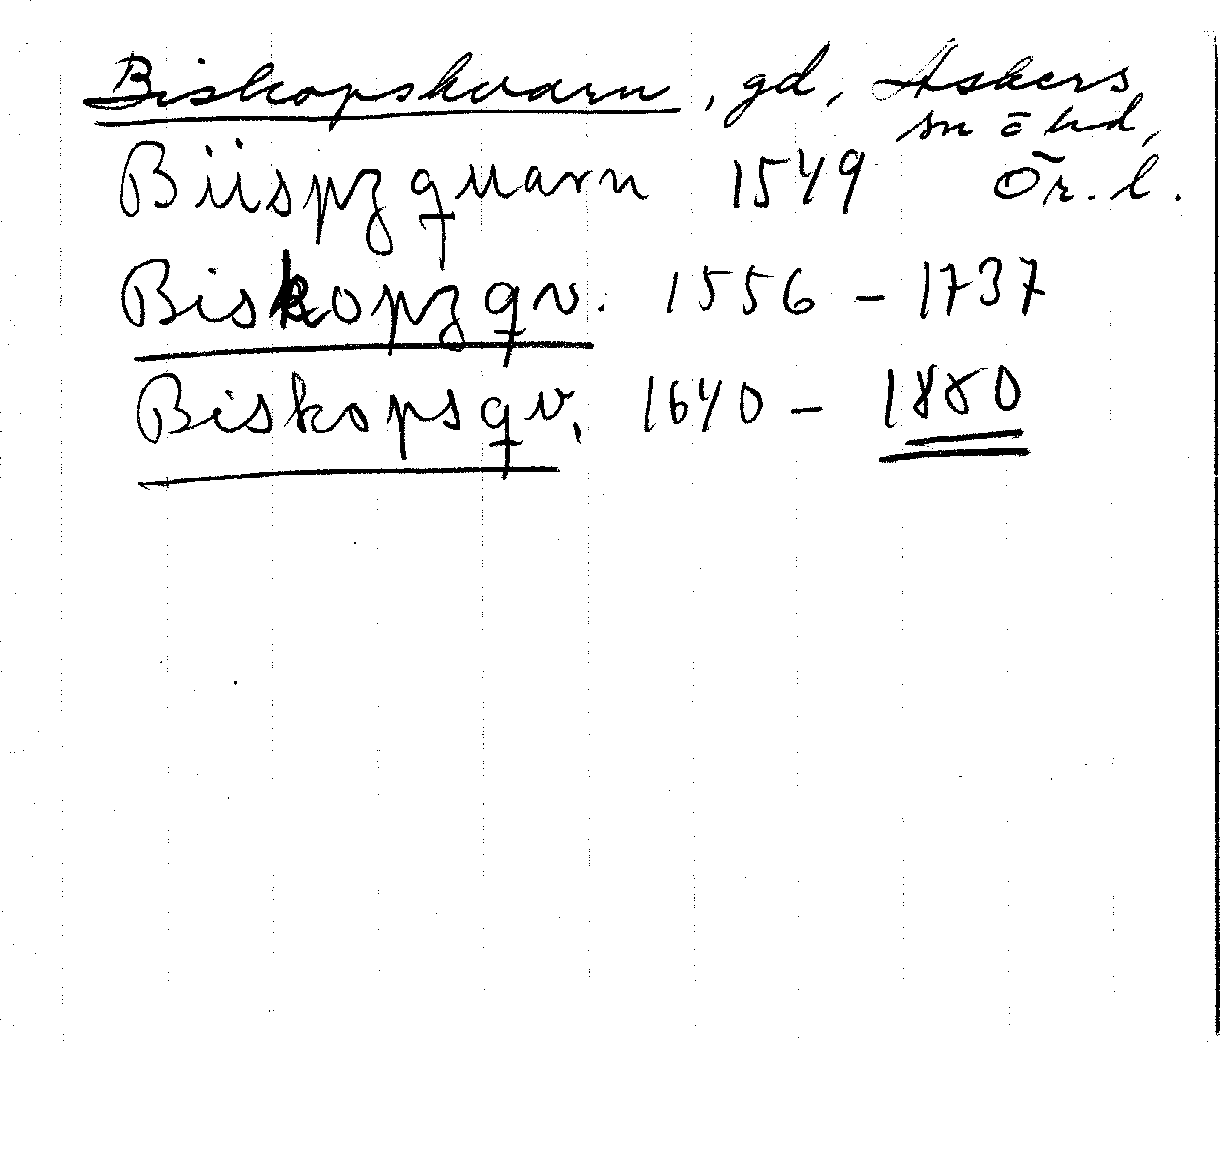 Biskopskvarn, gd, Askers
sn o hd,
Biispzquarn 1549 Ör. l.
Biskopzqv. 1556 – 1737
Biskopsqv. 1640 – 1880